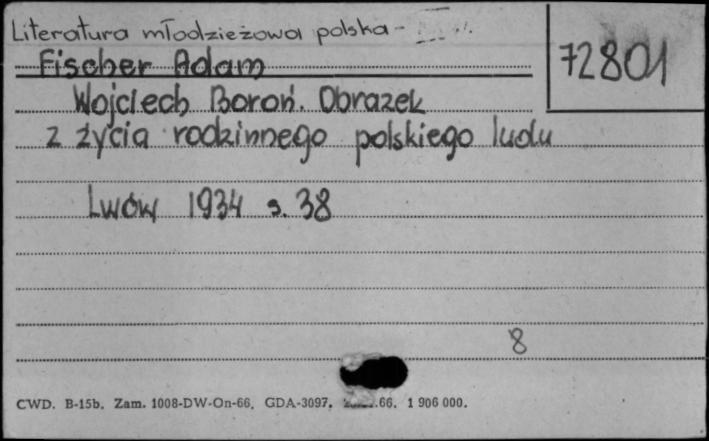 Literatura młodzieżowa polska -
72801
Fischer Adam
Wojciech Boroń. Obrazek
z życia rodzinnego polskiego ludu
Lwów 1934 s. 38
8
CWD. B-15b. Zam. 1008-DW-On-66. GDA-3097. .66. 1 906 000.